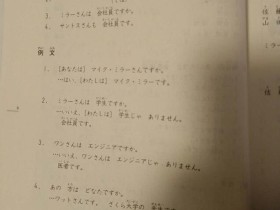 3. ミラーさんは 会社員ですか。
4. サントスさんも 会社員です。
例文
1. [あなたは] マイク・ミラーさんですか。
…はい、[わたしは] マイク・ミラーです。
2. ミラーさんは 学生ですか。
…いいえ、[わたしは] 学生じゃ ありません。
会社員です。
3. ワンさんは エンジニアですか。
…いいえ、ワンさんは エンジニアじゃ ありません。
医者です。
4. あの 方は どなたですか。
さくら大学の